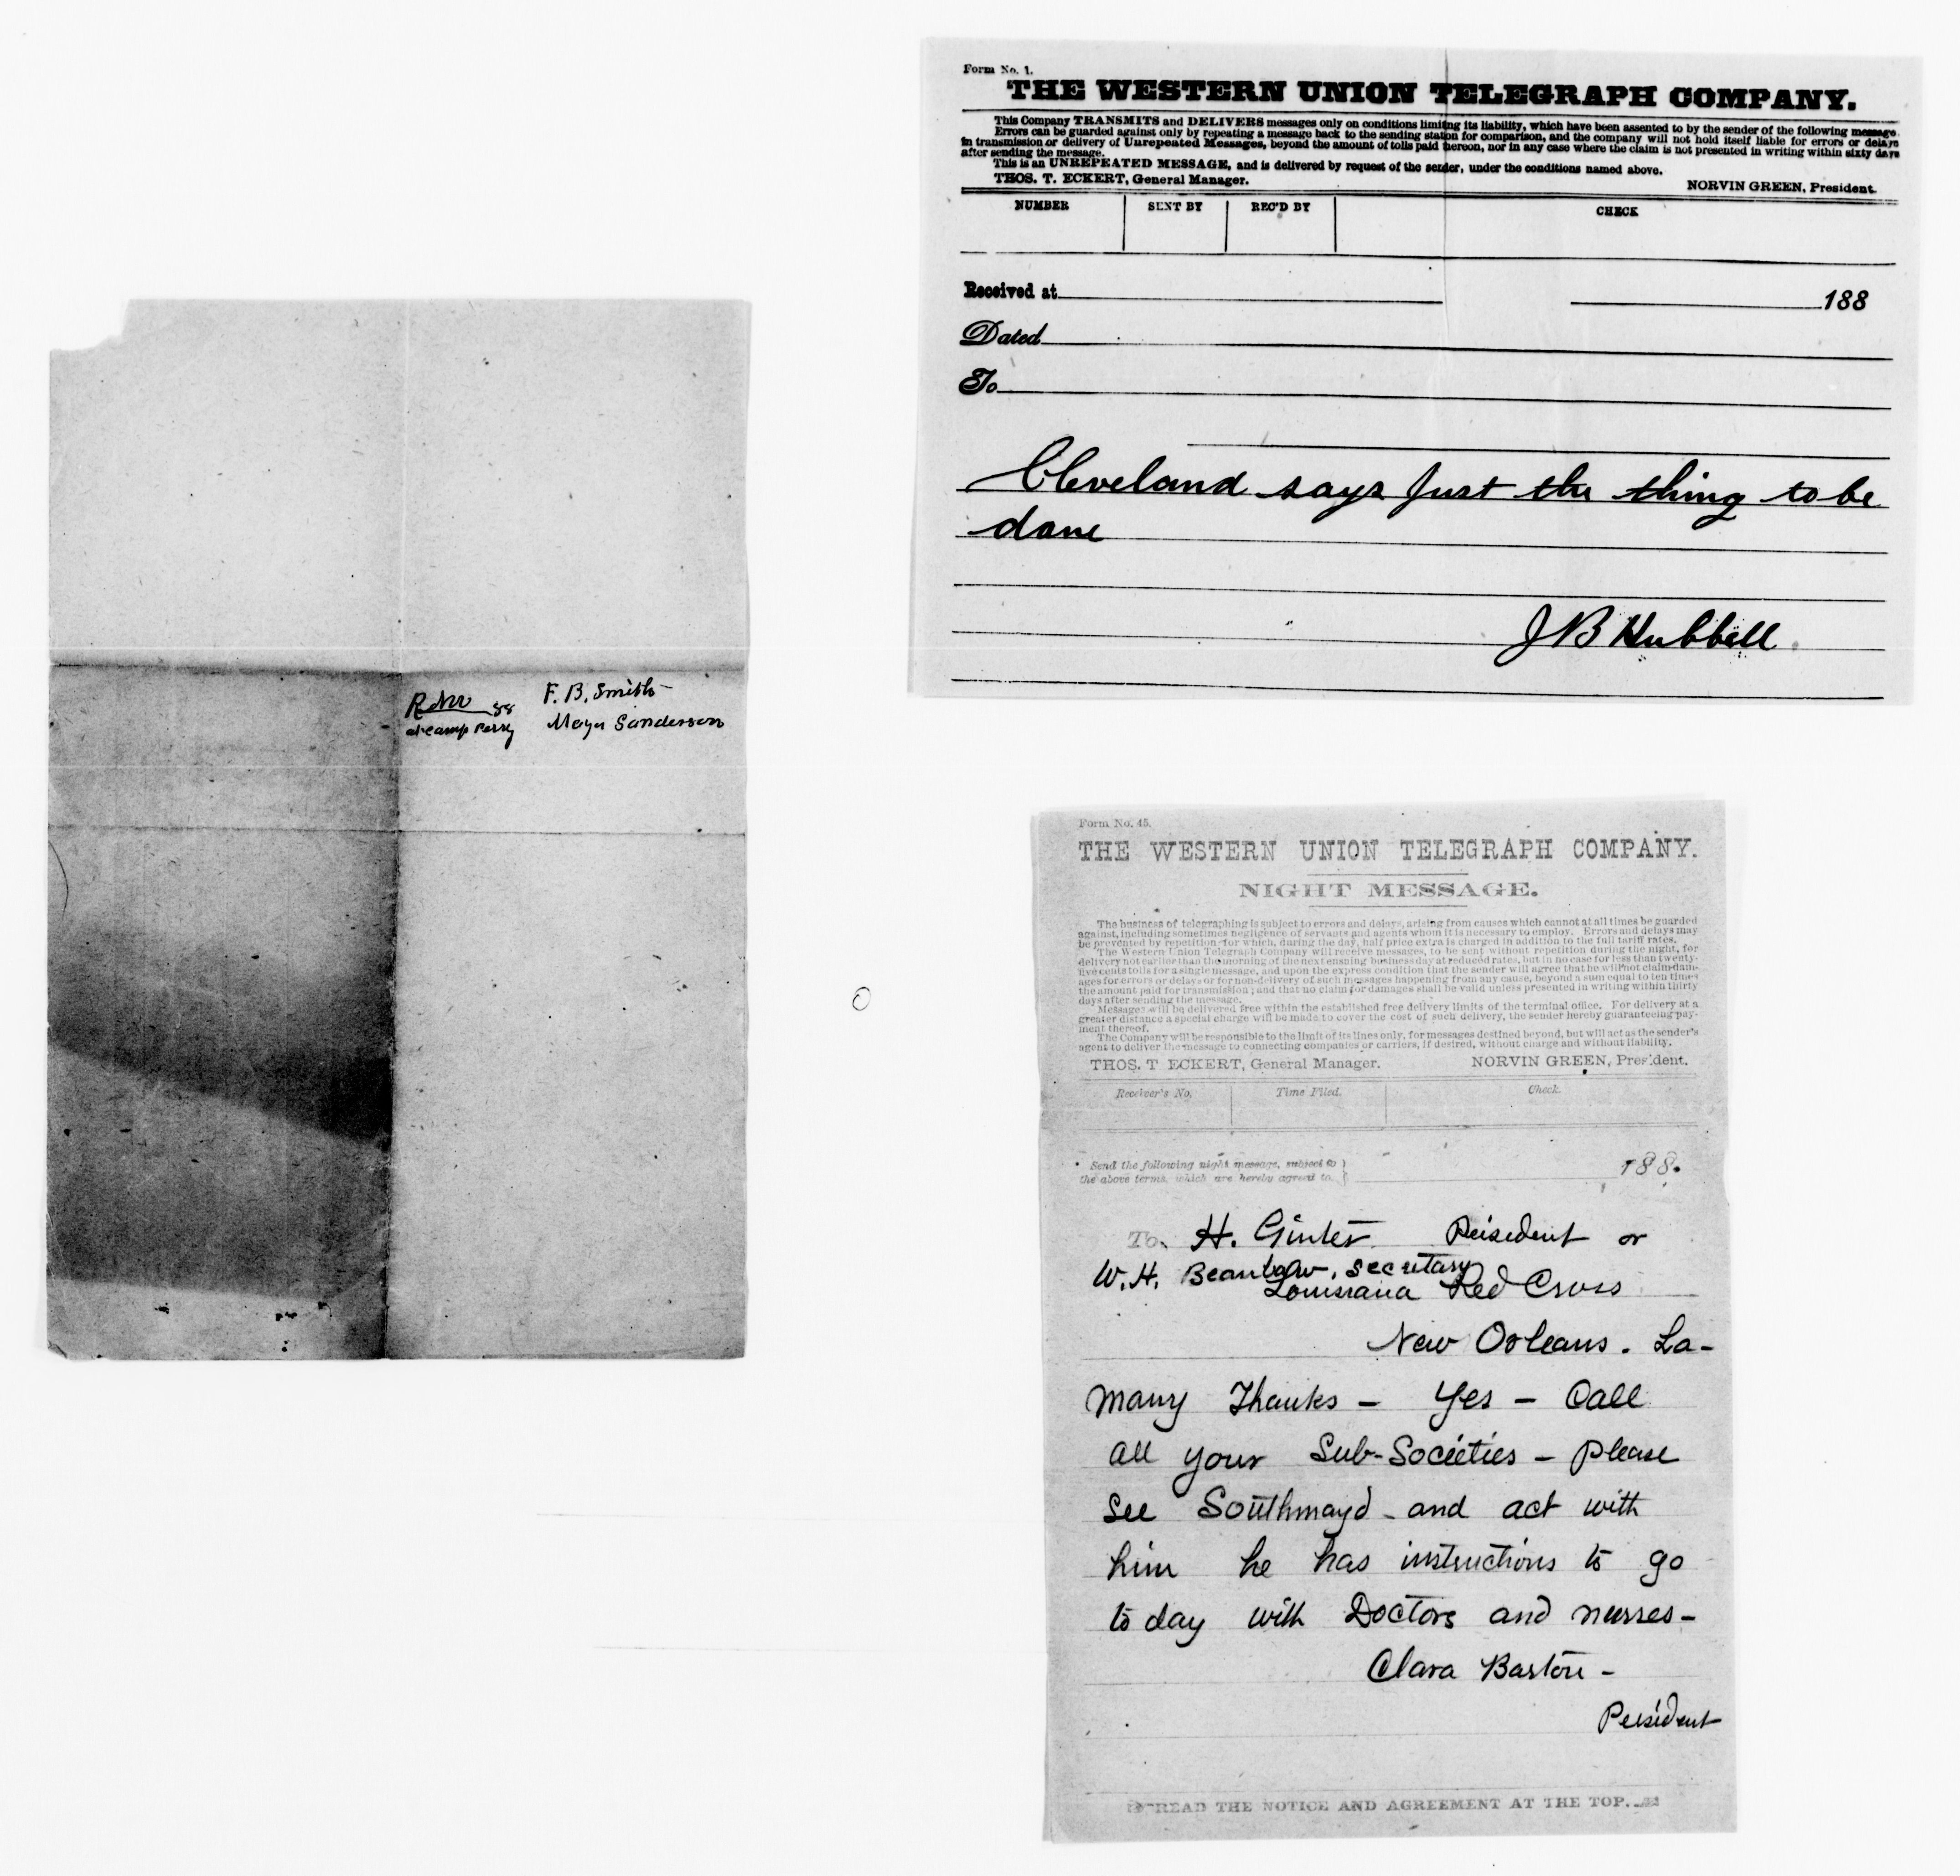 F. B. Smith
at camp Perry Mayor Sanderson
Form No. 1.
THE WESTERN UNION TELEGRAPH COMPANY.
This Company TRANSMITS and DELIVERS messages only on conditions limiting its liability, which have been assented to by the sender of the following message.
Errors can be guarded against only by repeating a message back to the sending station for comparison, and the company will not hold itself liable for errors or delays
in transmission or delivery of Unrepeated Messages, beyond the amount of tolls paid thereon, nor in any case where the claim is not presented in writing within sixty days
after sending the message.
This is an UNREPEATED MESSAGE, and is delivered by request of the sender, under the conditions named above.
THOS. T. ECKERT, General Manager. NORVIN GREEN, President.
NUMBER SENT BY REC'D BY CHECK
Received at 188
Dated
To
Cleveland says Just the thing to be
done
J B Hubbell
Form No. 45.
THE WESTERN UNION TELEGRAPH COMPANY.
NIGHT MESSAGE.
The business of telegraphing is subject to errors and delays, arising from causes which cannot at all times be guarded
against, including sometimes negligence of servants and agents whom it is necessary to employ. Errors and delays may
be prevented by repetition, for which, during the day, half price extra is charged in addition to the full tariff rates.
The Western Union Telegraph Company will receive messages, to be sent without repetition during the night, for
delivery not earlier than the morning of the next ensuing business day at reduced rates, but in no case for less than twenty-
five cents tolls for a single message, and upon the express condition that the sender will agree that he will not claim dam-
ages for errors or delays or for non-delivery of such messages happening from any cause, beyond a sum equal to ten times
the amount paid for transmission; and that no claim for damages shall be valid unless presented in writing within thirty
days after sending the message.
Messages will be delivered free within the established free delivery limits of the terminal office. For delivery at a
greater distance a special charge will be made to cover the cost of such delivery, the sender hereby guaranteeing pay-
ment thereof.
The Company will be responsible to the limit of its lines only, for messages destined beyond, but will act as the sender's
agent to deliver the message to connecting companies or carriers, if desired, without charge and without liability.
THOS. T ECKERT, General Manager. NORVIN GREEN, President.
Receiver's No. Time Filed. Check.
Send the following night message, subject to
the above terms, which are hereby agreed to. 188
To H. Ginter President or
W. H. secretary
Louisiana Red Cross
New Orleans. La-
many Thanks - Yes - Call
all your Sub-Societies - please
see Southmayd - and act with
him he has instructions to go
to day with Doctors and nurses-
Clara Barton -
President
READ THE NOTICE AND AGREEMENT AT THE TOP.